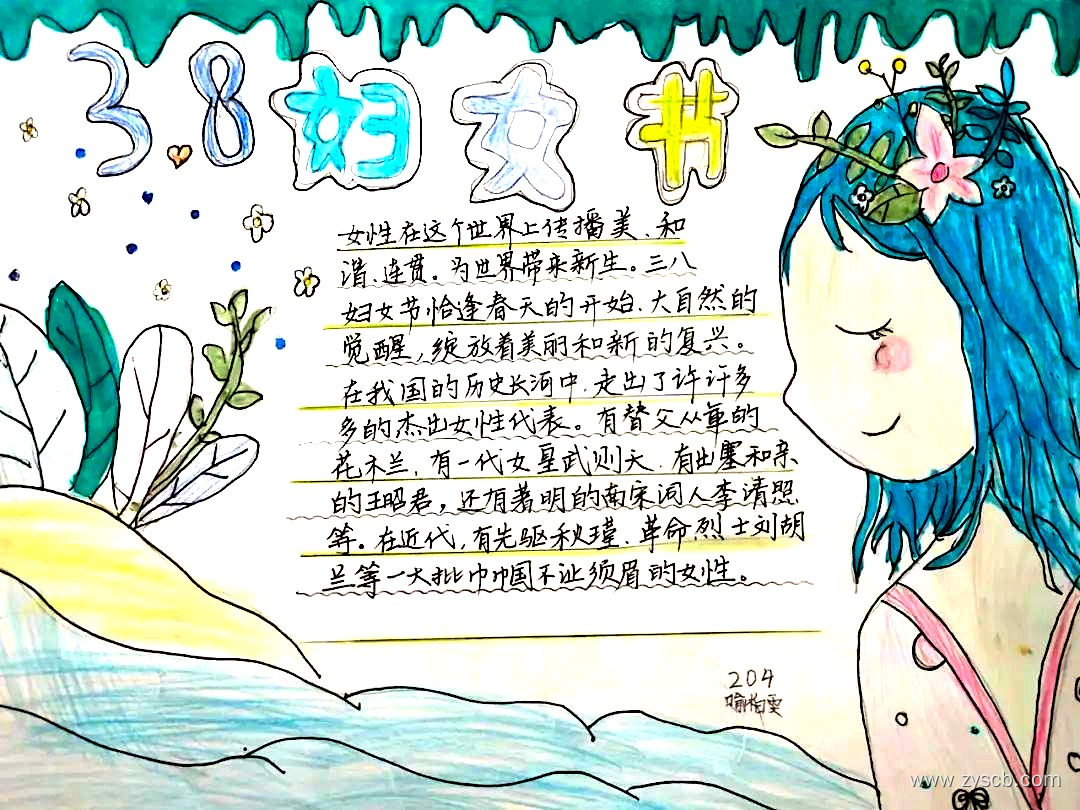 3.8妇女节
女性在这个世界上传播美、和
谐、连贯。为世界带来新生。三八
妇女节恰逢春天的开始、大自然的
觉醒,绽放着美丽和新的复兴。
在我国的历史长河中、走出了许许多
多的杰出女性代表。有替父从军的
花木兰,有一代女皇武则天、有出塞和亲
的王昭君,还有著明的南宋词人李清照
等。在近代,有先驱秋瑾、革命烈士刘胡
兰等一大批巾帼不让须眉的女性。
204
www.zyscb.com